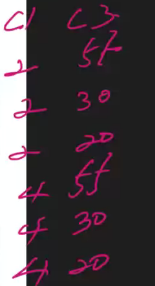 C1 C3
2 55
2 30
2 20
4 55
4 30
4 20